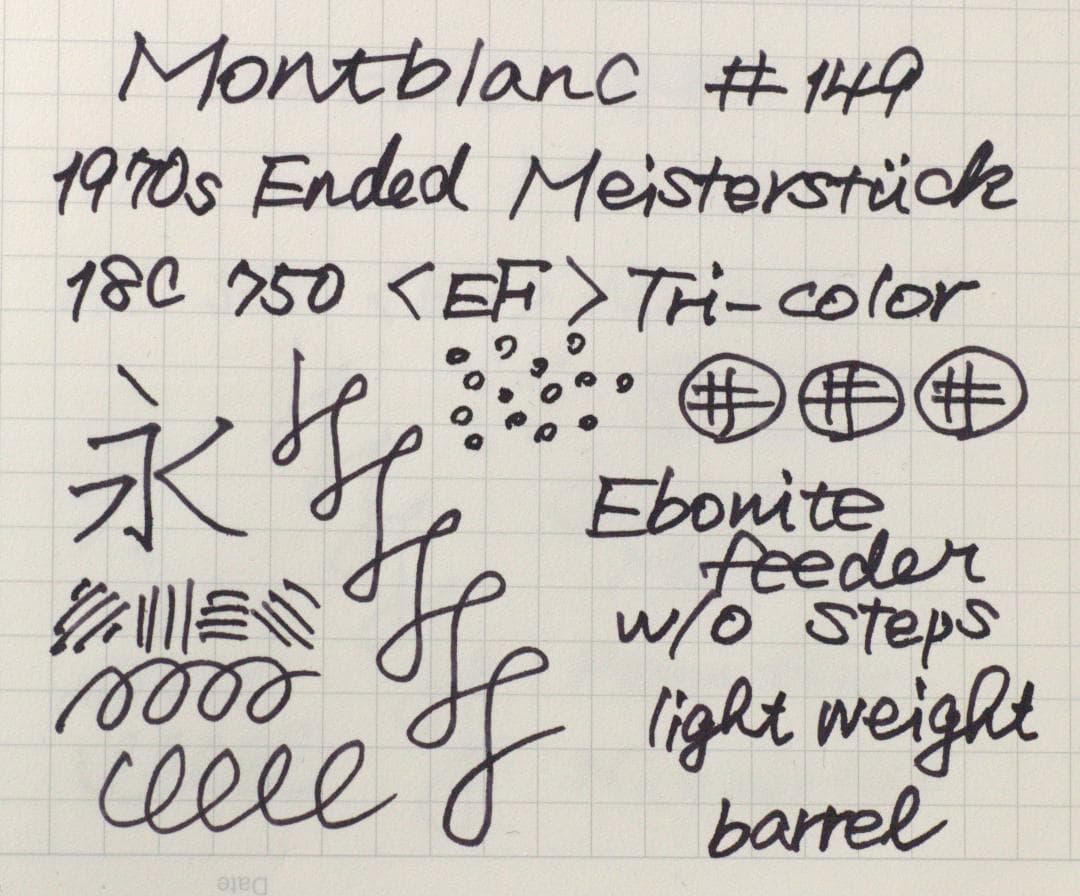 Montblanc #149
1970s Ended Meisterstück
18C 750 <EF> Tri-color
永
Ebonite
feeder
w/o steps
light weight
barrel
Date